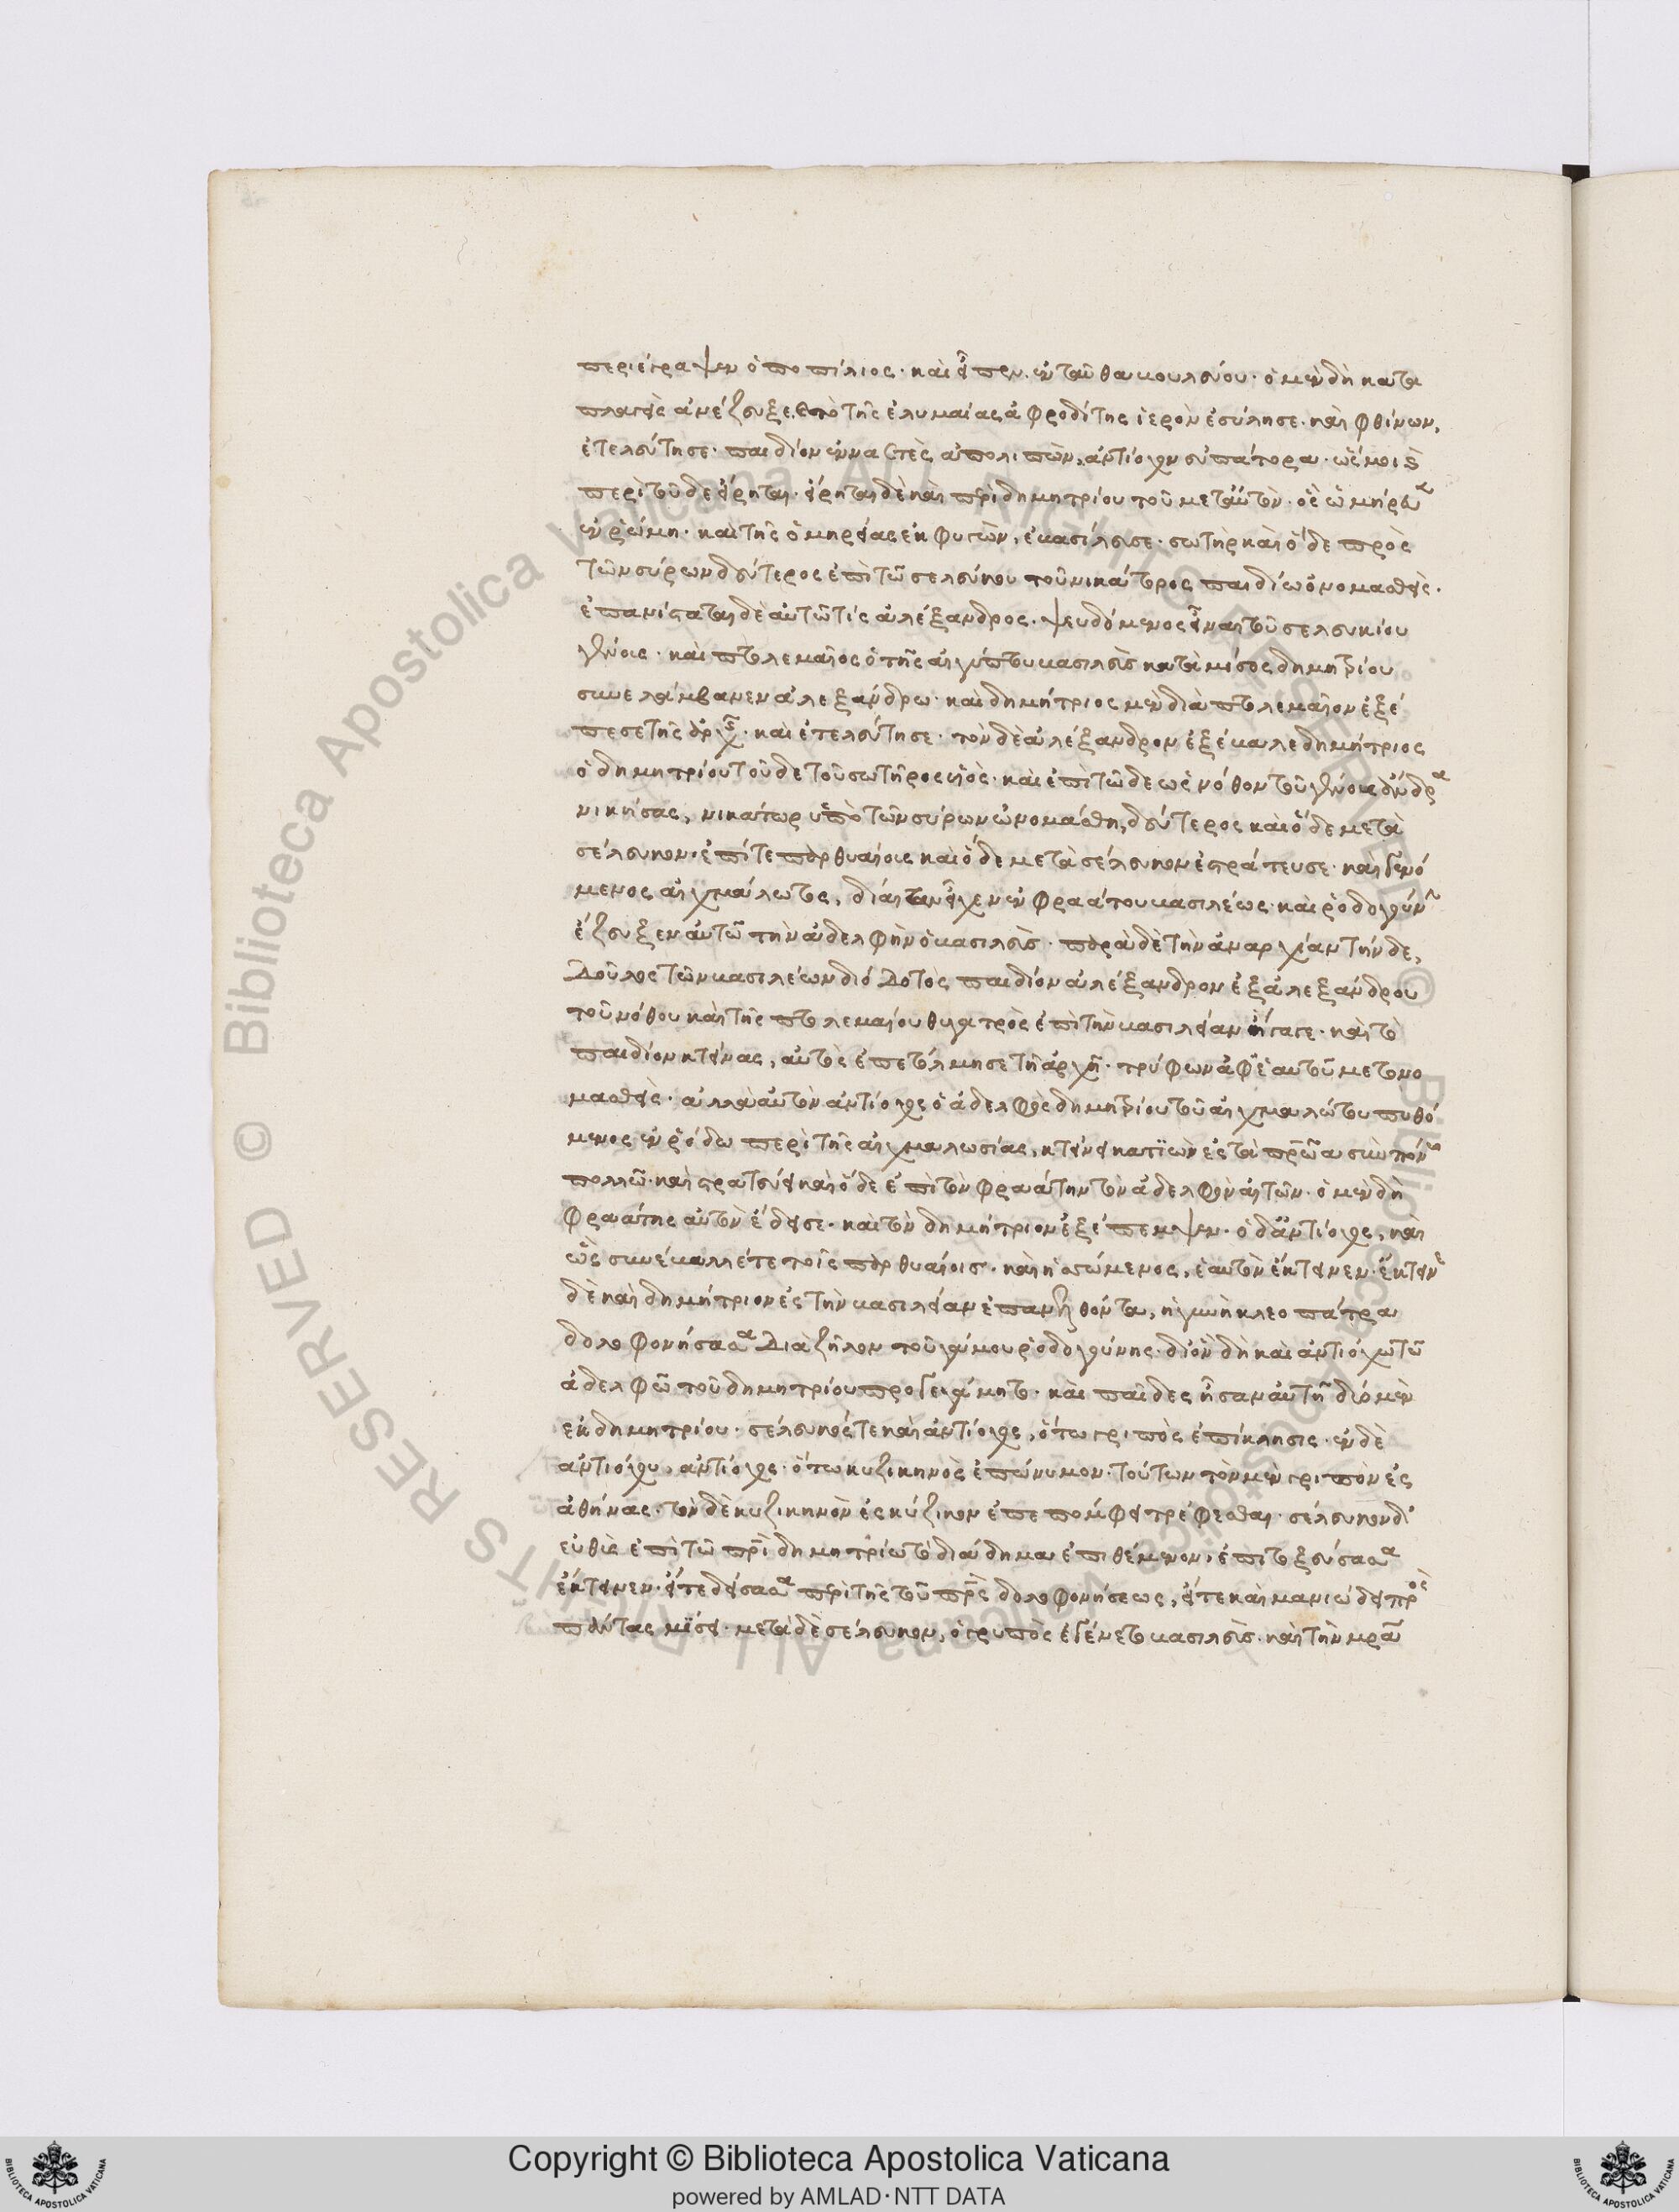 περιέγραψεν ὁ ποπίλιος· καὶ εἶπεν. ἐνταῦθα βουλεύου· ὁ μὲν δὴ κατα
πλαγεὶς ἀνέζευξε. καὶ τὸ τῆς ἐλυμαίας ἀφροδίτης ἱερὸν ἐσύλησε. καὶ φθίνων,
ἐτελεύτησε· παιδίον ἐνναετὲς ἀπολιπὼν, ἀντίοχον εὐπάτορα· ὥς μοι καὶ
περὶ τοῦδε εἴρηται· εἴρηται δὲ καὶ περὶ δημητρίου τοῦ μετ' αὐτὸν· ὃς ὡμήρευεν
ἐν ῥώμη· καὶ τῆς ὁμηρείας ἐκφυγὼν, ἐβασίλευσε· σωτὴρ καὶ ὅδε πρὸς
τῶν σύρων δεύτερος ἐπὶ τῶ σελεύκου τοῦ νικάτορος παιδίω ὀνομασθείς.
ἐπανίσταται δὲ αὐτῶ τίς ἀλέξανδρος· ψευδόμενος εἶναι τοῦ σελευκίου
γένους· καὶ πτολεμαῖος ὁ τῆς αἰγύπτου βασιλεὺς κατὰ μίσος δημητρίου
συνελάμβανεν ἀλεξάνδρω· καὶ δημήτριος μὲν διὰ πτολεμαῖον ἐξέ
πεσε τῆς ἀρχῆς· καὶ ἐτελεύτησε· τὸν δὲ ἀλέξανδρον ἐξέβαλε δημήτριος
ὁ δημητρίου τοῦδε τοῦ σωτῆρος υἱός· καὶ ἐπὶ τῶδε ὡς νόθον τοῦ γένους ἄνδρα
νικήσας, νικάτωρ ὑπὸ τῶν σύρων ὠνομάσθη, δεύτερος καὶ ὅδε μετὰ
σέλευκον· ἐπί τε παρθυαίοις καὶ ὅδε μετὰ σέλευκον ἐστράτευσε· καὶ γενό
μενος αἰχμάλωτος, δίαιταν εἶχεν ἐν φραάτου βασιλέως· καὶ ῥοδογύνην
ἔζευξεν αὐτῶ τὴν ἀδελφὴν ὁ βασιλεὺς· παρὰ δὲ τὴν ἀναρχίαν τήνδε,
δοῦλος τῶν βασιλέων διόδοτος παιδίον ἀλέξανδρον ἐξ ἀλεξάνδρου
τοῦ νόθου καὶ τῆς πτολεμαίου θυγατρὸς ἐπὶ τὴν βασιλείαν ἤγαγε· καὶ τὸ
παιδίον κτείνας, αὐτὸς ἐπετόλμησε τῆ ἀρχῆ· τρύφων ἀφ' ἑαυτοῦ μετονο
μασθείς· ἀλλὰ αὐτὸν ἀντίοχος ὁ ἀδελφὸς δημητρίου τοῦ αἰχμαλώτου πυθό
μενος ἐν ῥόδω περὶ τῆς αἰχμαλωσίας, κτείνει κατιὼν ἐς τὰ πατρῶα σὺν πόνω
πολλῶ· καὶ στρατεύει καὶ ὅδε ἐπὶ τὸν φραάτην τὸν ἀδελφὸν αἰτῶν· ὁ μὲν δὴ
φραάτης αὐτὸν ἔδεισε· καὶ τὸν δημήτριον ἐξέπεμψεν· ὁ δ' ἀντίοχος, καὶ
ὣς συνέβαλλέ τε τοῖς παρθυαίοις· καὶ ἡσσώμενος, ἑαυτὸν ἔκτεινεν· ἔκτεινε
δὲ καὶ δημήτριον ἐς τὴν βασιλείαν ἐπανελθόντα, ἡ γυνὴ κλεοπάτρα
δολοφονήσασα διὰ ζῆλον τοῦ γάμου ῥοδογύνης· δι' ὃν δὴ καὶ ἀντιόχω τῶ
ἀδελφῶ τοῦ δημητρίου προγεγάμητο· καὶ παῖδες ἦσαν αὐτῆ δύο μὲν
ἐκ δημητρίου· σέλευκός τε καὶ ἀντίοχος, ὅτω γρυπὸς ἐπίκλησις· ἐν δὲ
ἀντιόχου, ἀντίοχος· ὅτω κυζικηνὸς ἐπώνυμον· τούτων τὸν μὲν γρυπὸν ἐς
ἀθήνας· τὸν δὲ κυζικηνὸν ἐς κύζικον ἐπεπόμφει τρέφεσθαι· σέλευκον δ'
εὐθὺς ἐπὶ τῶ πατρὶ δημητρίω τὸ διάδημα ἐπιθέμενον, ἐπιτοξεύσασα
ἔκτεινεν· εἴτε δείσασα περὶ τῆς τοῦ πατρὸς δολοφονήσεως, εἴτε καὶ μανιώδει πρὸς
πάντας μίσει· μετὰ δὲ σέλευκον, ὁ γρυπὸς ἐγένετο βασιλεὺς· καὶ τὴν μητέρα